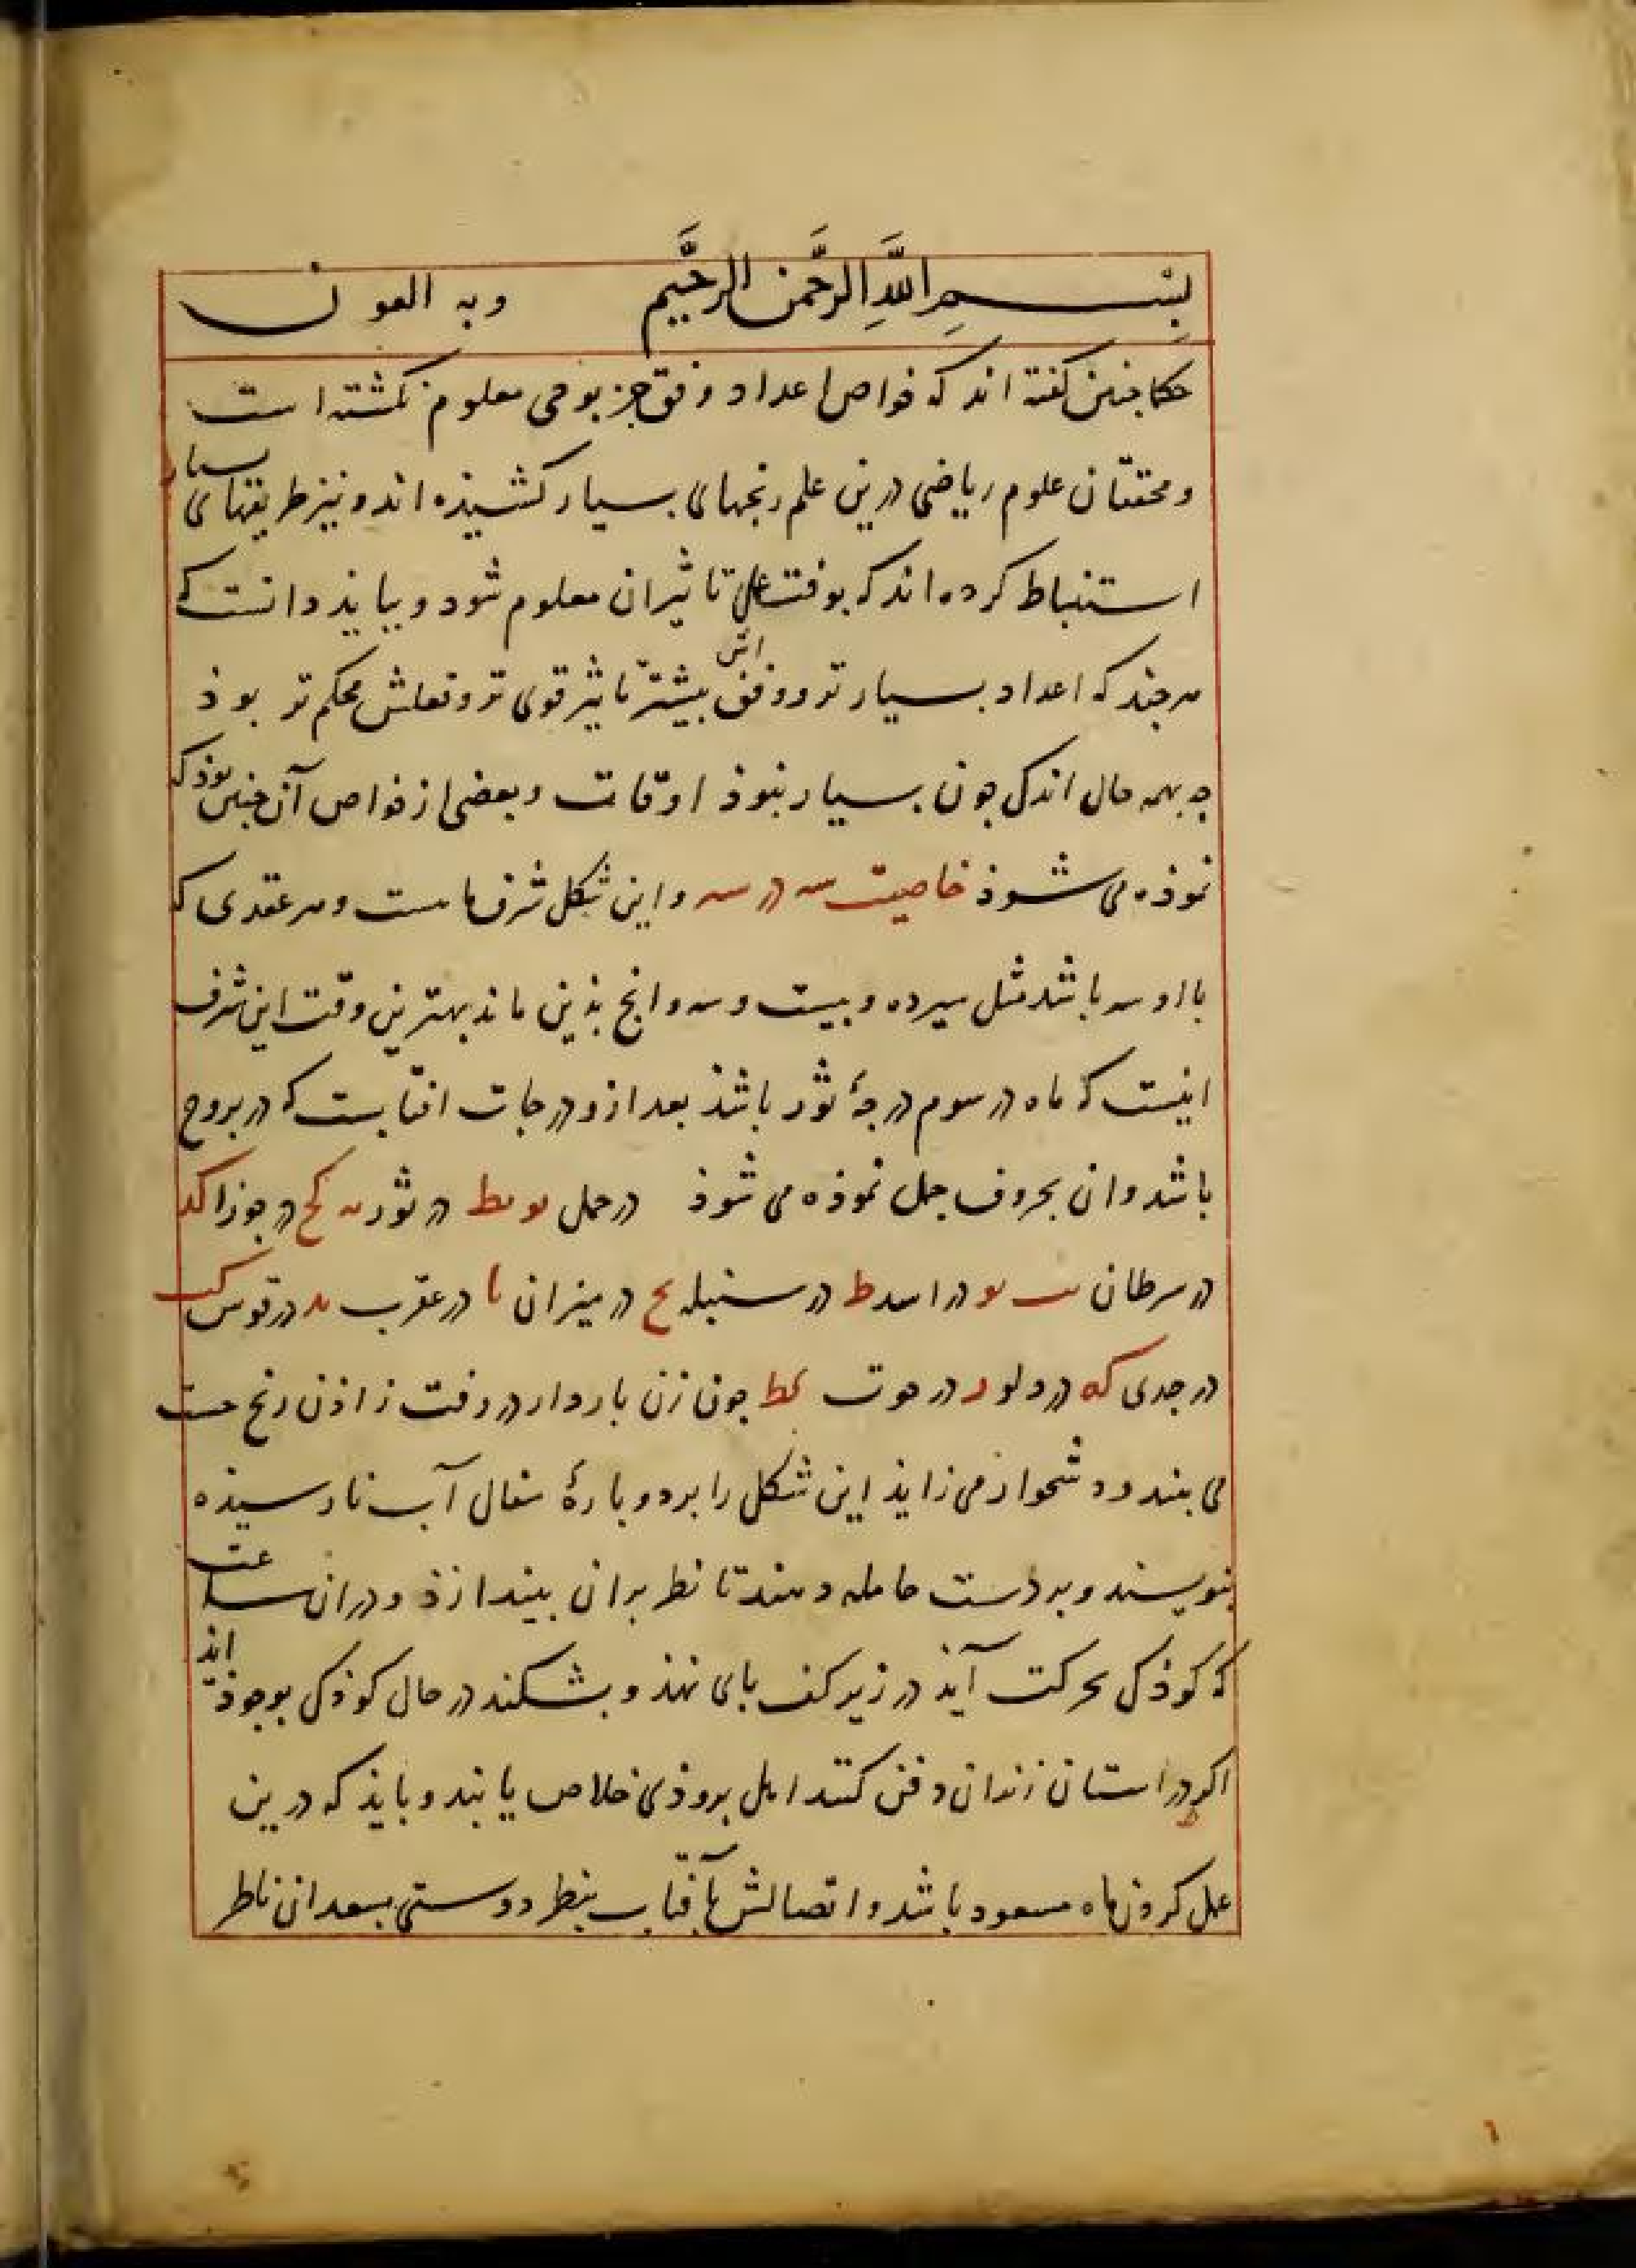 بِسْمِ اللَّهِ الرَّحْمنِ الرَّحَيم وبه العون
حكما جنين كفته اند كه خواص اعداد وفق جز بوحى معلوم نكشته است
ومحققّان علوم رياضى درين علم رنجهاى بسيار كشيذه اند ونيز طريقهاى بسيار
استنباط كرده اند كه بوقت عمل تاثيران معلوم شود وببايذ دانست كه
هرجند كه اعداد بسيار تر ووفق اش بيشتر تاثير قوى تر وفعلش محكم تر بوذ
جه بهمه حال اندك جون بسيار نبوذ اوقات وبعضى از خواص آن جنين بوذ كه
نموذه مى شوذ خاصيت سه در سه واين شكل شرف ماست وهر عقدى كه
با او سه باشد مثل سيزده وبيست وسه وانج بذين ماند بهترين وقت اين شرف
اينست كه ماه در سوم درجهٔ ثور باشذ بعد ازو درجات افتابست كه در بروج
باشد وان بحروف جمل نموذه مى شوذ درحمل يو يط در ثور كح در جوزا كد
در سرطان يو در اسد ط در سنبله يح در ميزان در عقرب در قوس كب
در جدى كه در دلو د در حوت كط جون زن باردار در وقت زاذن رنج سخت
مى بيند ودشخوار مى زايذ اين شكل را بردو پارهٔ سفال آب نارسيذه
بنويسند وبر دست حامله دهند تا نظر بران بيندازذ ودران ساعت
كه كوذك بحركت آيذ در زير كف پاى نهند وبشكند در حال كوذك بوجوذ ايذ
اكر در استان زندان دفن كنند اهل بروذى خلاص يابند وبايذ كه درين
عمل كردن ماه مسعود باشد واتصالش بآفتاب بنظر دوستى بسعدان ناظر
١